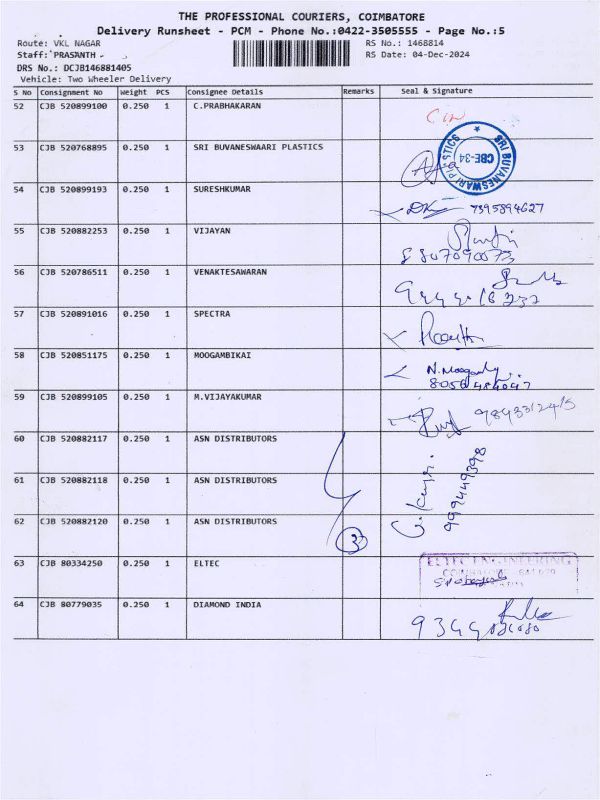 THE PROFESSIONAL COURIERS, COIMBATORE
Delivery Runsheet - PCM - Phone No.:0422-3505555 - Page No.:5
Route: VKL NAGAR RS No.: 1468814
Staff: PRASANTH - RS Date: 04-Dec-2024
DRS No.: DCJB146881405
Vehicle: Two Wheeler Delivery
S No Consignment No Weight PCS Consignee Details Remarks Seal & Signature
52 CJB 520899100 0.250 1 C.PRABHAKARAN
53 CJB 520768895 0.250 1 SRI BUVANESWAARI PLASTICS
SRI BUVANESWAARI PLASTICS
CBE-34
54 CJB 520899193 0.250 1 SURESHKUMAR 7395894627
55 CJB 520882253 0.250 1 VIJAYAN
56 CJB 520786511 0.250 1 VENAKTESAWARAN
57 CJB 520891016 0.250 1 SPECTRA
58 CJB 520851175 0.250 1 MOOGAMBIKAI
59 CJB 520899105 0.250 1 M.VIJAYAKUMAR
60 CJB 520882117 0.250 1 ASN DISTRIBUTORS
61 CJB 520882118 0.250 1 ASN DISTRIBUTORS
62 CJB 520882120 0.250 1 ASN DISTRIBUTORS 3
63 CJB 80334250 0.250 1 ELTEC
ELTEC ENGINEERING
64 CJB 80779035 0.250 1 DIAMOND INDIA